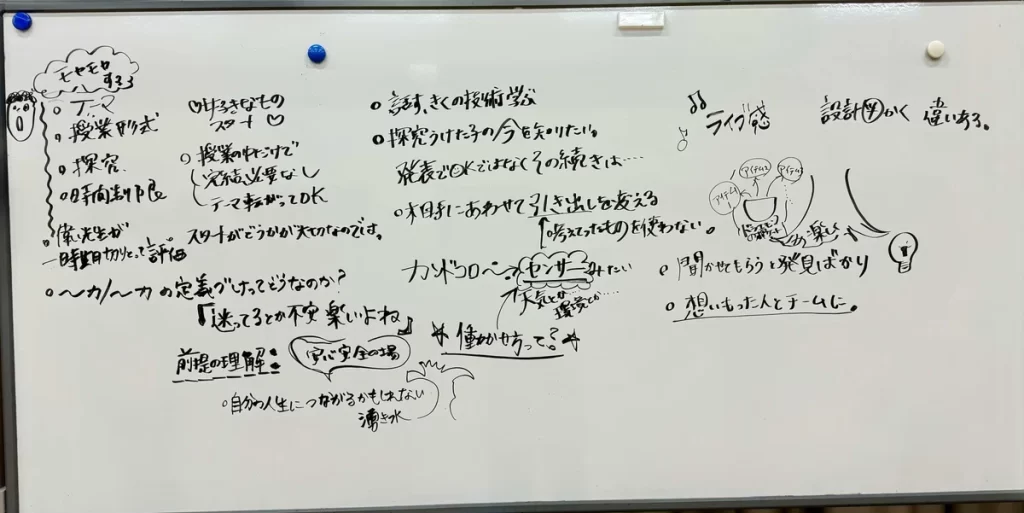 モヤモヤ
する
○テーマ
○授業形式
○探究
○時間制限
○偉い先生が
一時間目切りとって評価
○〜カ/〜カの定義づけってどうなのか?
『迷ってるとか不安 楽しいよね』
前提の理解:
安心安全の場
○自分の人生につながるかもしれない
湧き水
♡好きなもの
スタート♡
○授業の中だけで
完結必要なし
テーマ転がってOK
スタートがどうかが大切なのでは。
○話す、きくの技術学ぶ
○探究うけた子の今を知りたい。
発表でOKではなくその続きは…
○相手にあわせて引き出しを変える
↑考えてったものを使わない。
カンドコロ〜
センサーみたい
天気とか…
環境とか…
☆働かせ方って?☆
♫
♪
ライブ感
設計
かく
違いある。
アイテム
アイテム
アイテム
楽しい
○聞かせてもらうと発見ばかり
○想いもった人とチームに。